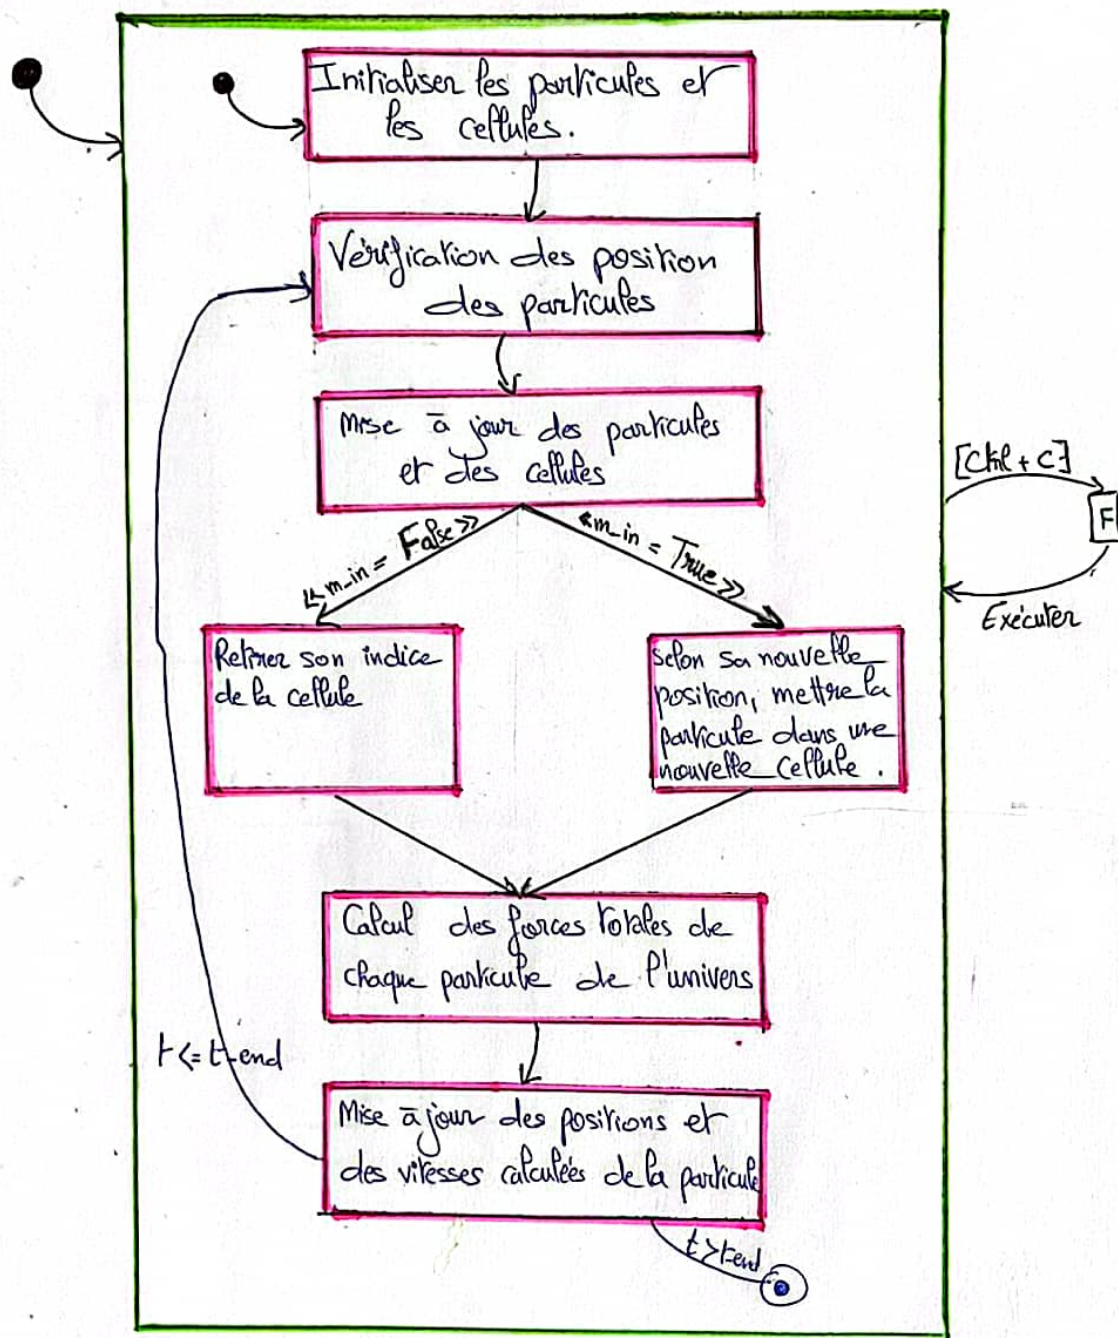 Initialiser les particules et
les cellules.
Vérification des position
des particules
Mise à jour des particules
et des cellules
[Ctrl + C]
F
Exécuter
<< m_in = False >>
<< m_in = True >>
Retirer son indice
de la cellule
Selon sa nouvelle
position, mettre la
particule dans une
nouvelle cellule.
Calcul des forces totales de
chaque particule de l'univers
t <= t-end
Mise à jour des positions et
des vitesses calculées de la particule
t > t-end